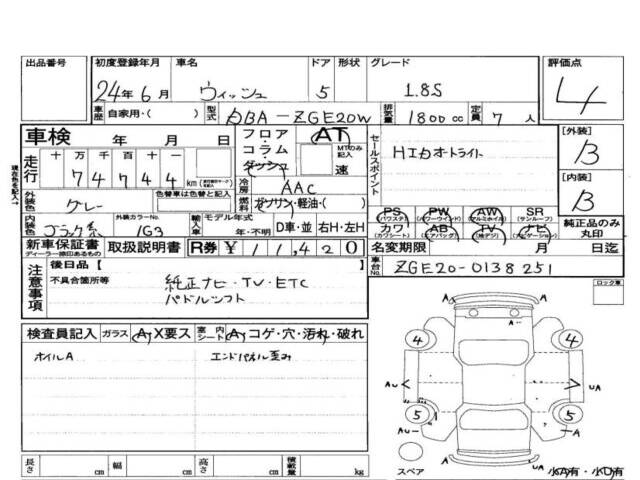 出品番号 初度登録年月 車名 ドア 形状 グレード 評価点
24年6月 ウィッシュ 5 1.8S 4
車歴 自家用・( ) 型式 DBA-ZGE20W 排気量 1800cc 定員 7人
車検 年 月 日 フロア AT セールスポイント [外装]
走行 十 万 千 百 十 一 コラム MTのみ記入 HIDオートライト B
7 4 7 4 4 km ダッシュ 速 [内装]
現在色を記入→ 冷房 AAC B
外装色 グレー 色替車は色替と記入 燃料 ガソリン・軽油・( ) PS (パワステ) PW (パワーウインド) AW (アルミホイル) SR (サンルーフ) 純正品のみ丸印
内装色 ブラック系 外装カラーNo. 1G3 輸入車 モデル年式 年・不明 D車・並 右H・左H カワ (カワシート) AB (エアバッグ) TV (地デジ) ナビ (ナビゲーション)
新車保証書 ディーラー捺印あるもの 取扱説明書 R券 ¥11,420 名変期限 月 日迄
注意事項 後日品【 】 車台No. ZGE20-0138251
不具合箇所等 純正ナビ・TV・ETC ロック車
パドルシフト A
検査員記入 ガラス A, X要ス 室内シート A, コゲ・穴・汚れ・破れ 4 4
ホイルA エンドパネル歪み AU UA
5 5
AU A
長さ cm 幅 cm 高さ cm 積載量 kg スペア A 小A有・小U有